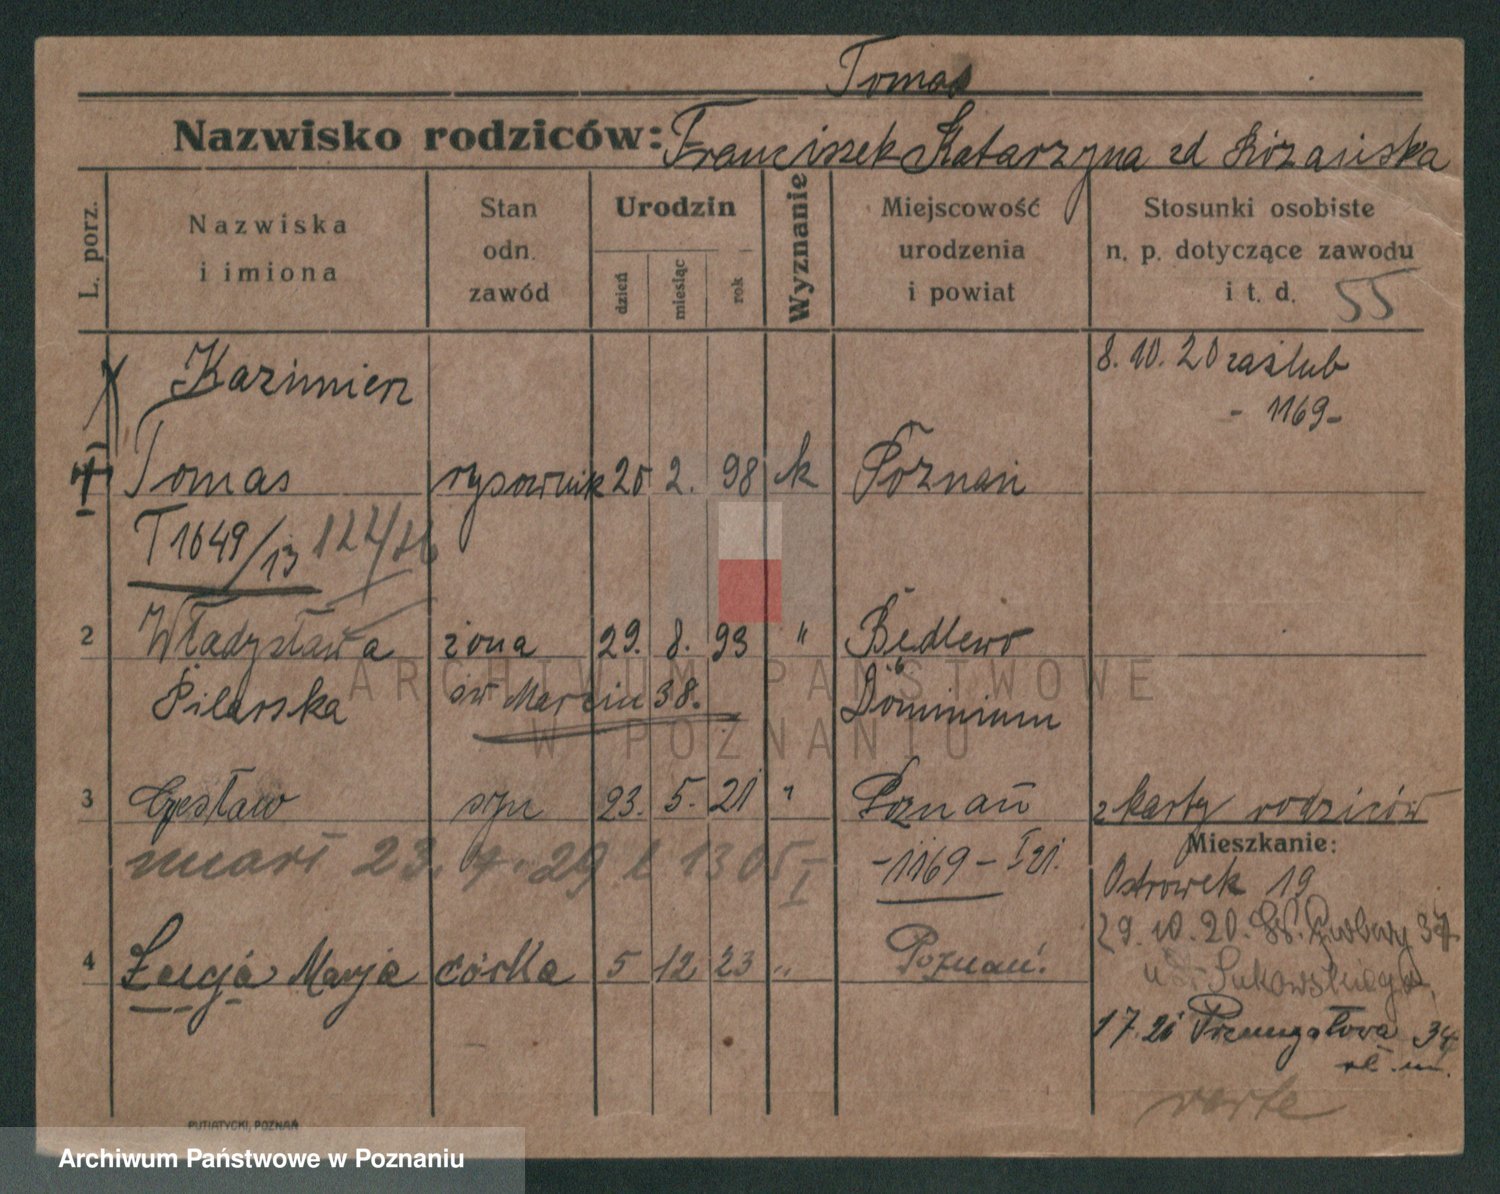 Tomas
Nazwisko rodziców: Franciszek Katarzyna zd Łozańska
L. porz.
Nazwiska i imiona
Stan odn. zawód
Urodzin
dzień
miesiąc
rok
Wyznanie
Miejscowość urodzenia i powiat
Stosunki osobiste n. p. dotyczące zawodu i t. d. 55
Kazimierz
8. 10. 20 zaślub
- 1169 -
1 Tomas rysownik 25 2. 98 k Poznań
T 1649/13
2 Władysława żona 29. 8. 93 " Będlewo
Pilarska św Marcin 38. Dominium
3 Czesław syn 23. 5. 21 " Poznań z karty rodziców
zmarł 23. 7. 29 1305/I - 1169 - I 21.
Mieszkanie:
Ostrówek 19
29. 10. 20.
4 Łucja Marja córka 5 12 23 " Poznań.
17. 21 34
verte
PUTIATYCKI, POZNAŃ
ARCHIWUM PAŃSTWOWE
W POZNANIU
Archiwum Państwowe w Poznaniu